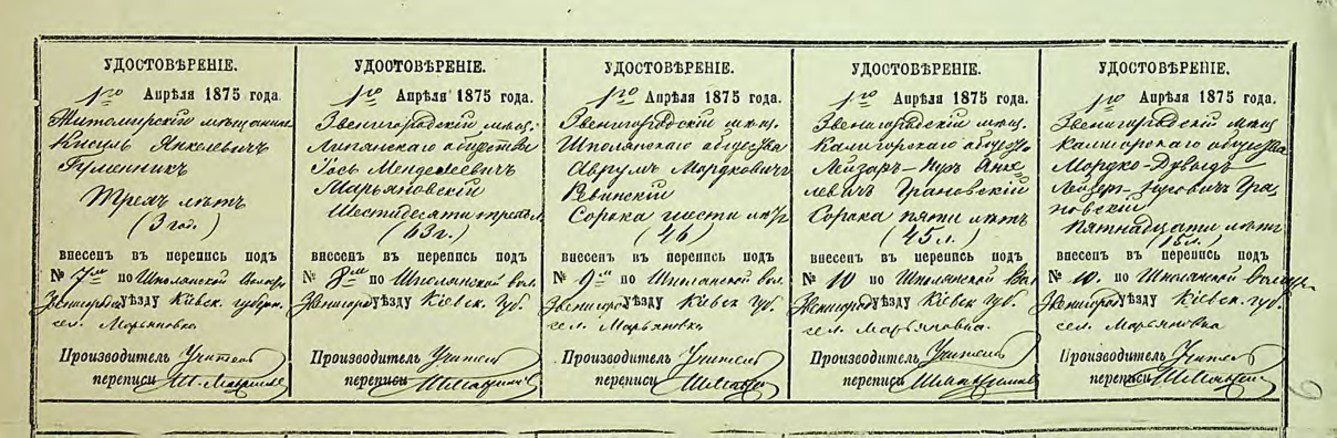 УДОСТОВѢРЕНІЕ.
1го Апрѣля 1875 года.
Житомирскій мѣщанинъ
Кисиль Янкелевичъ
Гуменникъ
Трехъ лѣтъ
(3 год.)
внесенъ въ перепись подъ
№ 7м по Шполянской Волости
Звенигородс уѣзду Кіевск. губерн.
сел. Марьяновка
Производитель Учитель
переписи
УДОСТОВѢРЕНІЕ.
1го Апрѣля 1875 года.
Звенигородскій мѣщ.
Липянскаго общества
Іось Менделевичъ
Марьяновскій
Шестидесяти трехъ л.
(63 г.)
внесенъ въ перепись подъ
№ 8м по Шполянской вол.
Звенигород уѣзду Кіевск. губ.
Производитель Учитель
переписи
УДОСТОВѢРЕНІЕ.
1го Апрѣля 1875 года.
Звенигородскій мѣщ.
Шполянскаго общества
Аврумъ Мордковичъ
Ревинскій
Сорока шести лѣтъ
(46)
внесенъ въ перепись подъ
№ 9м по Шполянской вол.
Звенигород уѣзду Кіевск губ.
сел. Марьяновка
Производитель Учитель
переписи
УДОСТОВѢРЕНІЕ.
1го Апрѣля 1875 года.
Звенигородскій мѣщ.
Калигорскаго общества
Лейзаръ-Нухъ Янке-
левичъ Грановскій
Сорока пяти лѣтъ
(45 л.)
внесенъ въ перепись подъ
№ 10 по Шполянской Вол
Звенигород уѣзду Кіевск губ.
сел. Марьяновка.
Производитель Учитель
переписи
УДОСТОВѢРЕНІЕ.
1го Апрѣля 1875 года.
Звенигородскій мѣщ
Калигорскаго общества
Мордко-Дувыдъ
Лейзеръ-Нуховичъ Гра-
новскій
Пятнадцати лѣтъ
(15 л.)
внесенъ въ перепись подъ
№ 10. по Шполянской волости
Звенигород уѣзду Кіевск. губ.
сел. Марьяновка
Производитель Учитель
переписи